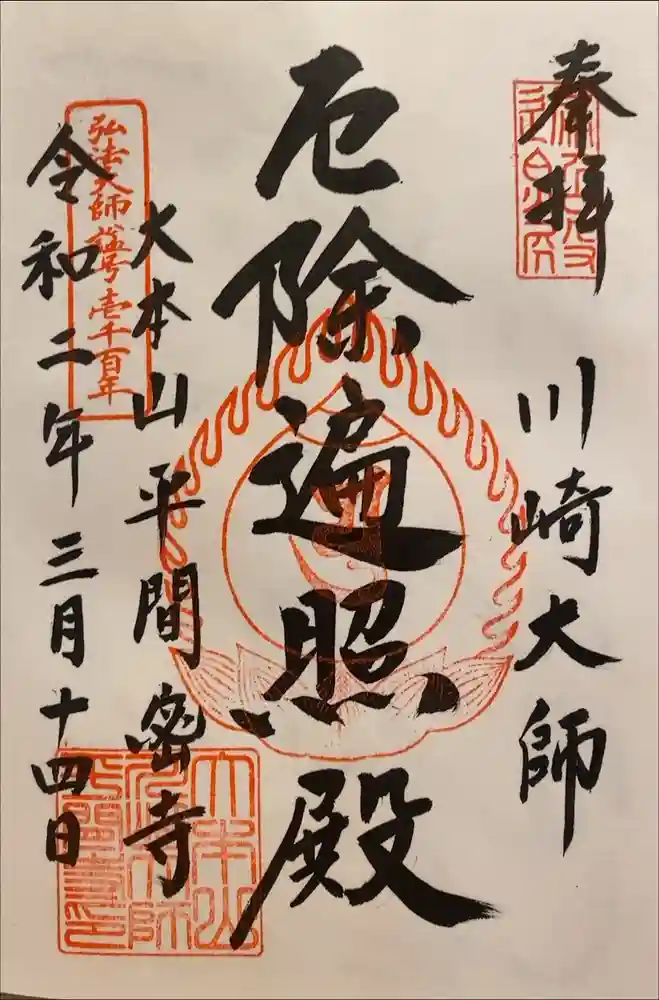 奉拝
川崎大師
厄除遍照殿
大本山平間密寺
弘法大師諡号壱千百年
令和二年三月十四日